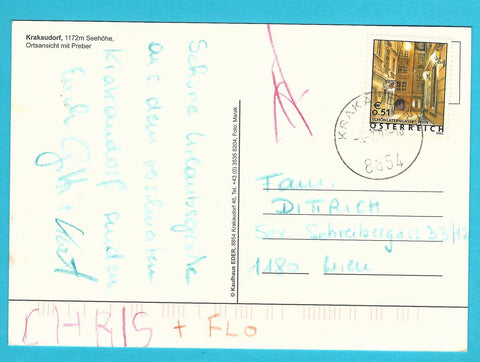 Krakaudorf, 1172m Seehöhe,
Ortsansicht mit Preber
Schöne Urlaubsgrüße
aus dem
Krakaudorf senden
Euch
© Kaufhaus EDER, 8854 Krakaudorf 46, Tel. +43 (0) 3535 8204, Foto: Marek
€
0.51
SCHÖNLATERNGASSE, WIEN
ÖSTERREICH
8854
Fam.
DITTRICH
Schreibergasse 33/12
1180 Wien
CHRIS + FLO